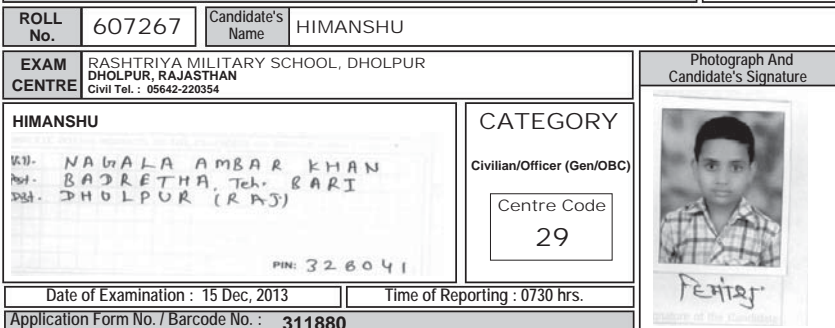 ROLL No. 607267 Candidate's Name HIMANSHU
EXAM CENTRE
RASHTRIYA MILITARY SCHOOL, DHOLPUR
DHOLPUR, RAJASTHAN
Civil Tel. : 05642-220354
Photograph And
Candidate's Signature
HIMANSHU
Vill- NAGALA AMBAR KHAN
Post- BADRETHA, Teh. BARI
Dist- DHOLPUR (RAJ)
PIN: 328041
CATEGORY
Civilian/Officer (Gen/OBC)
Centre Code
29
हिमांशु
Date of Examination : 15 Dec, 2013 Time of Reporting : 0730 hrs.
Application Form No. / Barcode No. : 311880